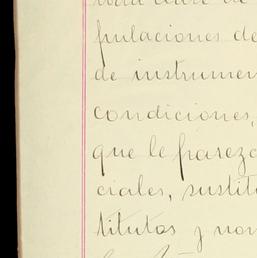 toda clase de
pulaciones de
de instrumen
condiciones,
que le parezc
ciales, sustit
titutos y nom